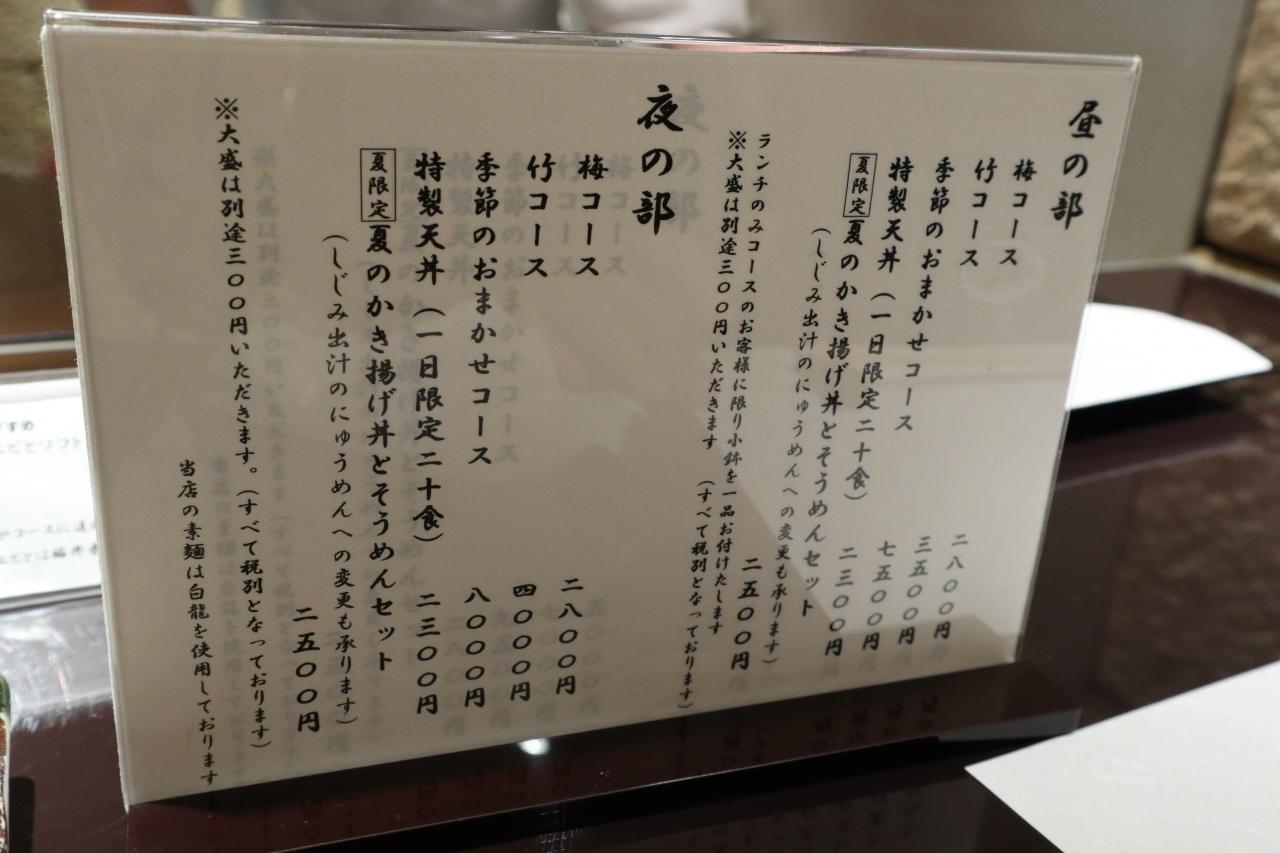 昼の部
梅コース 二八〇〇円
竹コース 三五〇〇円
季節のおまかせコース 七五〇〇円
特製天丼（一日限定二十食） 二三〇〇円
夏限定 夏のかき揚げ丼とそうめんセット
（しじみ出汁のにゅうめんへの変更も承ります）
二五〇〇円
ランチのみコースのお客様に限り小鉢を一品お付けたします
※大盛は別途三〇〇円いただきます （すべて税別となっております）
夜の部
梅コース 二八〇〇円
竹コース 四〇〇〇円
季節のおまかせコース 八〇〇〇円
特製天丼（一日限定二十食） 二三〇〇円
夏限定 夏のかき揚げ丼とそうめんセット
（しじみ出汁のにゅうめんへの変更も承ります）
二五〇〇円
※大盛は別途三〇〇円いただきます。（すべて税別となっております）
当店の素麺は白龍を使用しております